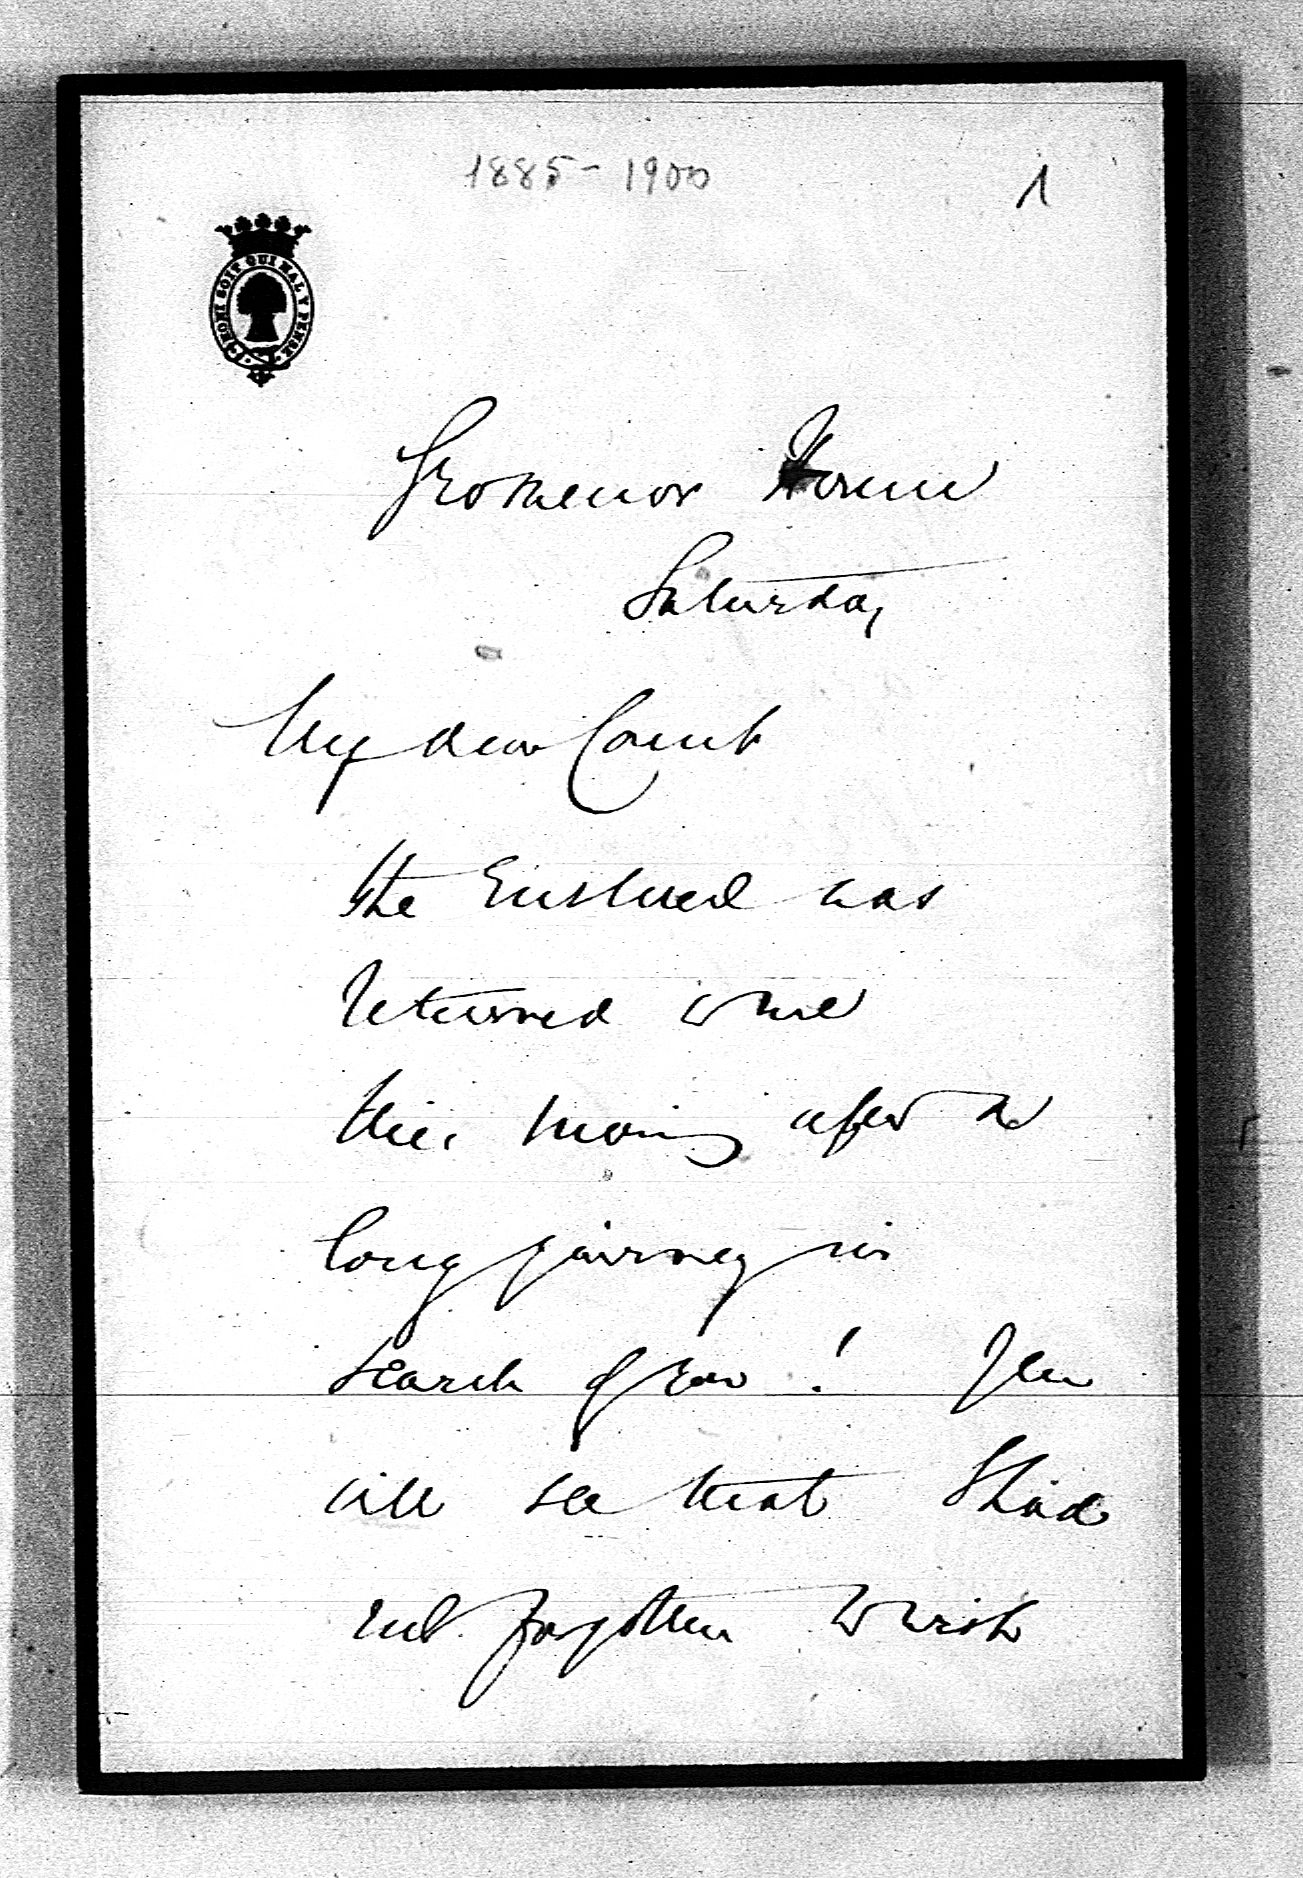 1885-1900
1
HONI SOIT QUI MAL Y PENSE
Grosvenor House
Saturday
My dear Count
The Enclosed was
returned to me
this morning after a
long journey in
search of you! You
will see that I had
not forgotten to wish